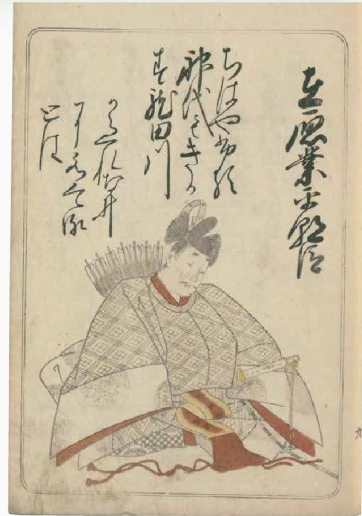 在原業平朝臣
ちはやふる
神代もきか
す龍田川
からくれなゐ
に水くゝる
とは